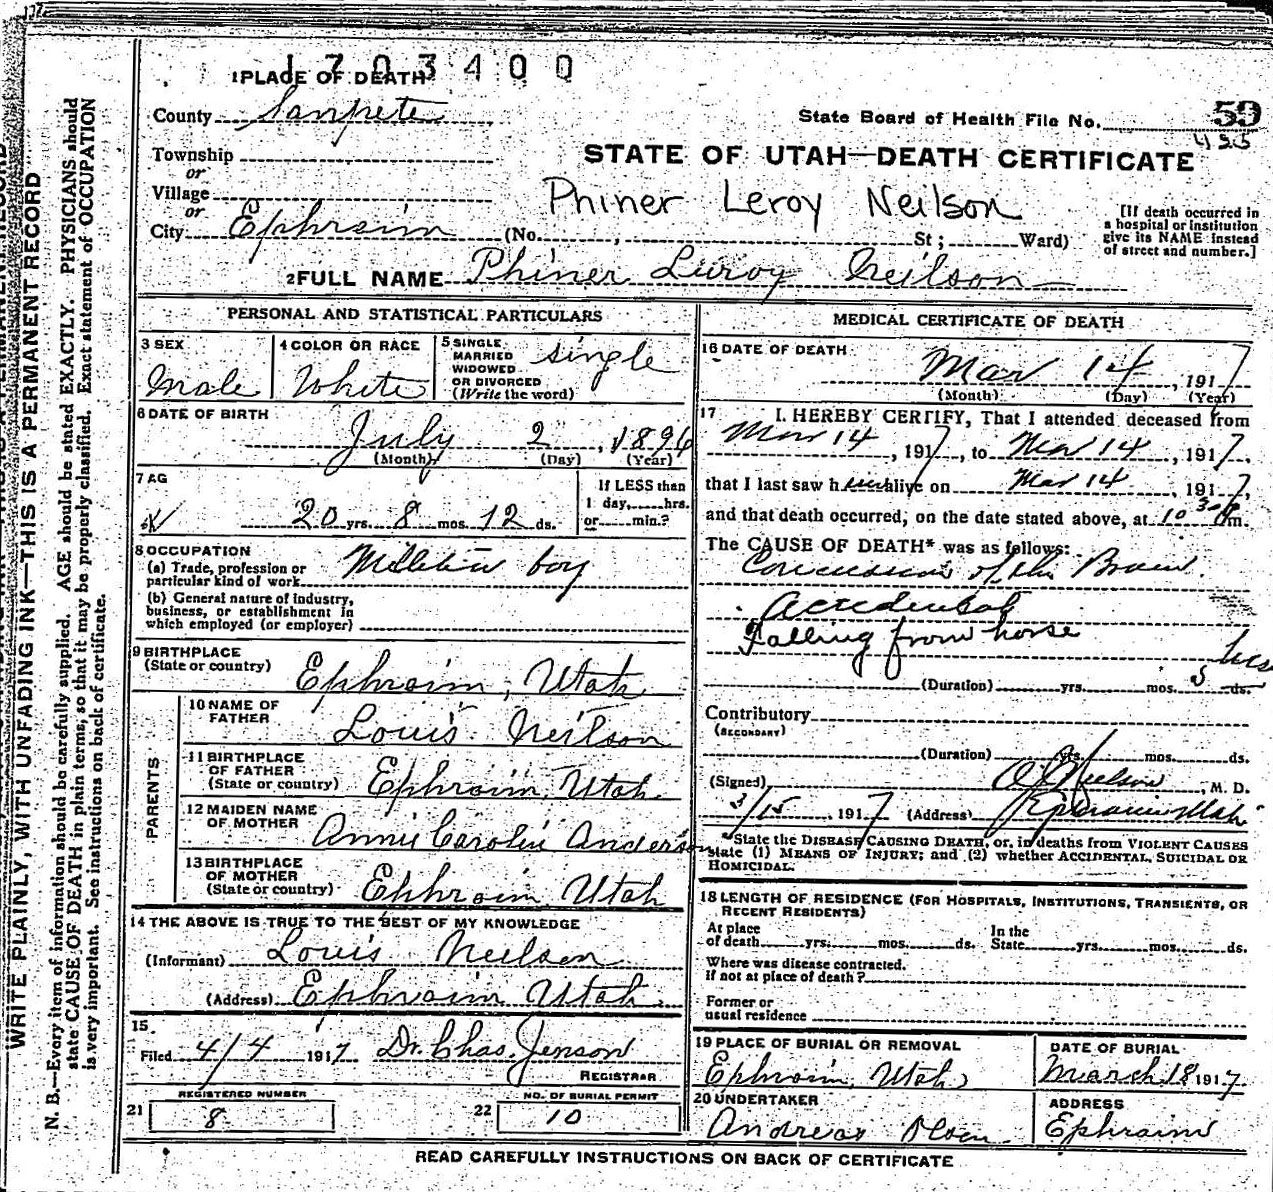 1703400
1 PLACE OF DEATH
County Sanpete
State Board of Health File No. 59
435
Township
or
Village
or
City Ephraim (No. , St ; Ward)
STATE OF UTAH—DEATH CERTIFICATE
Phiner Leroy Neilson
[If death occurred in
a hospital or institution
give its NAME instead
of street and number.]
2 FULL NAME Phiner Leroy Neilson
PERSONAL AND STATISTICAL PARTICULARS
3 SEX
Male
4 COLOR OR RACE
White
5 SINGLE,
MARRIED
WIDOWED
OR DIVORCED
(Write the word)
single
6 DATE OF BIRTH
July 2, 1896
(Month) (Day) (Year)
7 AG
20 yrs. 8 mos. 12 ds.
If LESS than
1 day, hrs.
or min.?
8 OCCUPATION
(a) Trade, profession or
particular kind of work boy
(b) General nature of industry,
business, or establishment in
which employed (or employer)
9 BIRTHPLACE
(State or country) Ephraim, Utah
PARENTS
10 NAME OF
FATHER Louis Neilson
11 BIRTHPLACE
OF FATHER
(State or country) Ephraim, Utah
12 MAIDEN NAME
OF MOTHER Annie Caroline Anderson
13 BIRTHPLACE
OF MOTHER
(State or country) Ephraim, Utah
14 THE ABOVE IS TRUE TO THE BEST OF MY KNOWLEDGE
(Informant) Louis Neilson
(Address) Ephraim Utah
15
Filed 4/4 1917 Dr. Chas. Jenson
REGISTRAR
REGISTERED NUMBER
21 8
NO. OF BURIAL PERMIT
22 10
MEDICAL CERTIFICATE OF DEATH
16 DATE OF DEATH
Mar 14, 1917
(Month) (Day) (Year)
17 I HEREBY CERTIFY, That I attended deceased from
Mar 14, 1917, to Mar 14, 1917,
that I last saw h im alive on Mar 14, 1917,
and that death occurred, on the date stated above, at 10 30 m.
The CAUSE OF DEATH* was as follows:
Concussion of the Brain.
Accidental
Falling from horse
hrs
(Duration) yrs. mos. 5 ds.
Contributory
(SECONDARY)
(Duration) yrs. mos. ds.
(Signed) Neilson, M. D.
3/15, 1917 (Address) Ephraim Utah
*State the DISEASE CAUSING DEATH, or, in deaths from VIOLENT CAUSES
state (1) MEANS OF INJURY; and (2) whether ACCIDENTAL, SUICIDAL OR
HOMICIDAL.
18 LENGTH OF RESIDENCE (FOR HOSPITALS, INSTITUTIONS, TRANSIENTS, OR
RECENT RESIDENTS)
At place
of death yrs. mos. ds.
In the
State yrs. mos. ds.
Where was disease contracted.
If not at place of death?
Former or
usual residence
19 PLACE OF BURIAL OR REMOVAL
Ephraim, Utah
DATE OF BURIAL
March 18 1917
20 UNDERTAKER
Andreas Olsen
ADDRESS
Ephraim
READ CAREFULLY INSTRUCTIONS ON BACK OF CERTIFICATE
WRITE PLAINLY, WITH UNFADING INK—THIS IS A PERMANENT RECORD
N. B.—Every item of information should be carefully supplied. AGE should be stated EXACTLY. PHYSICIANS should
state CAUSE OF DEATH in plain terms, so that it may be properly classified. Exact statement of OCCUPATION
is very important. See instructions on back of certificate.